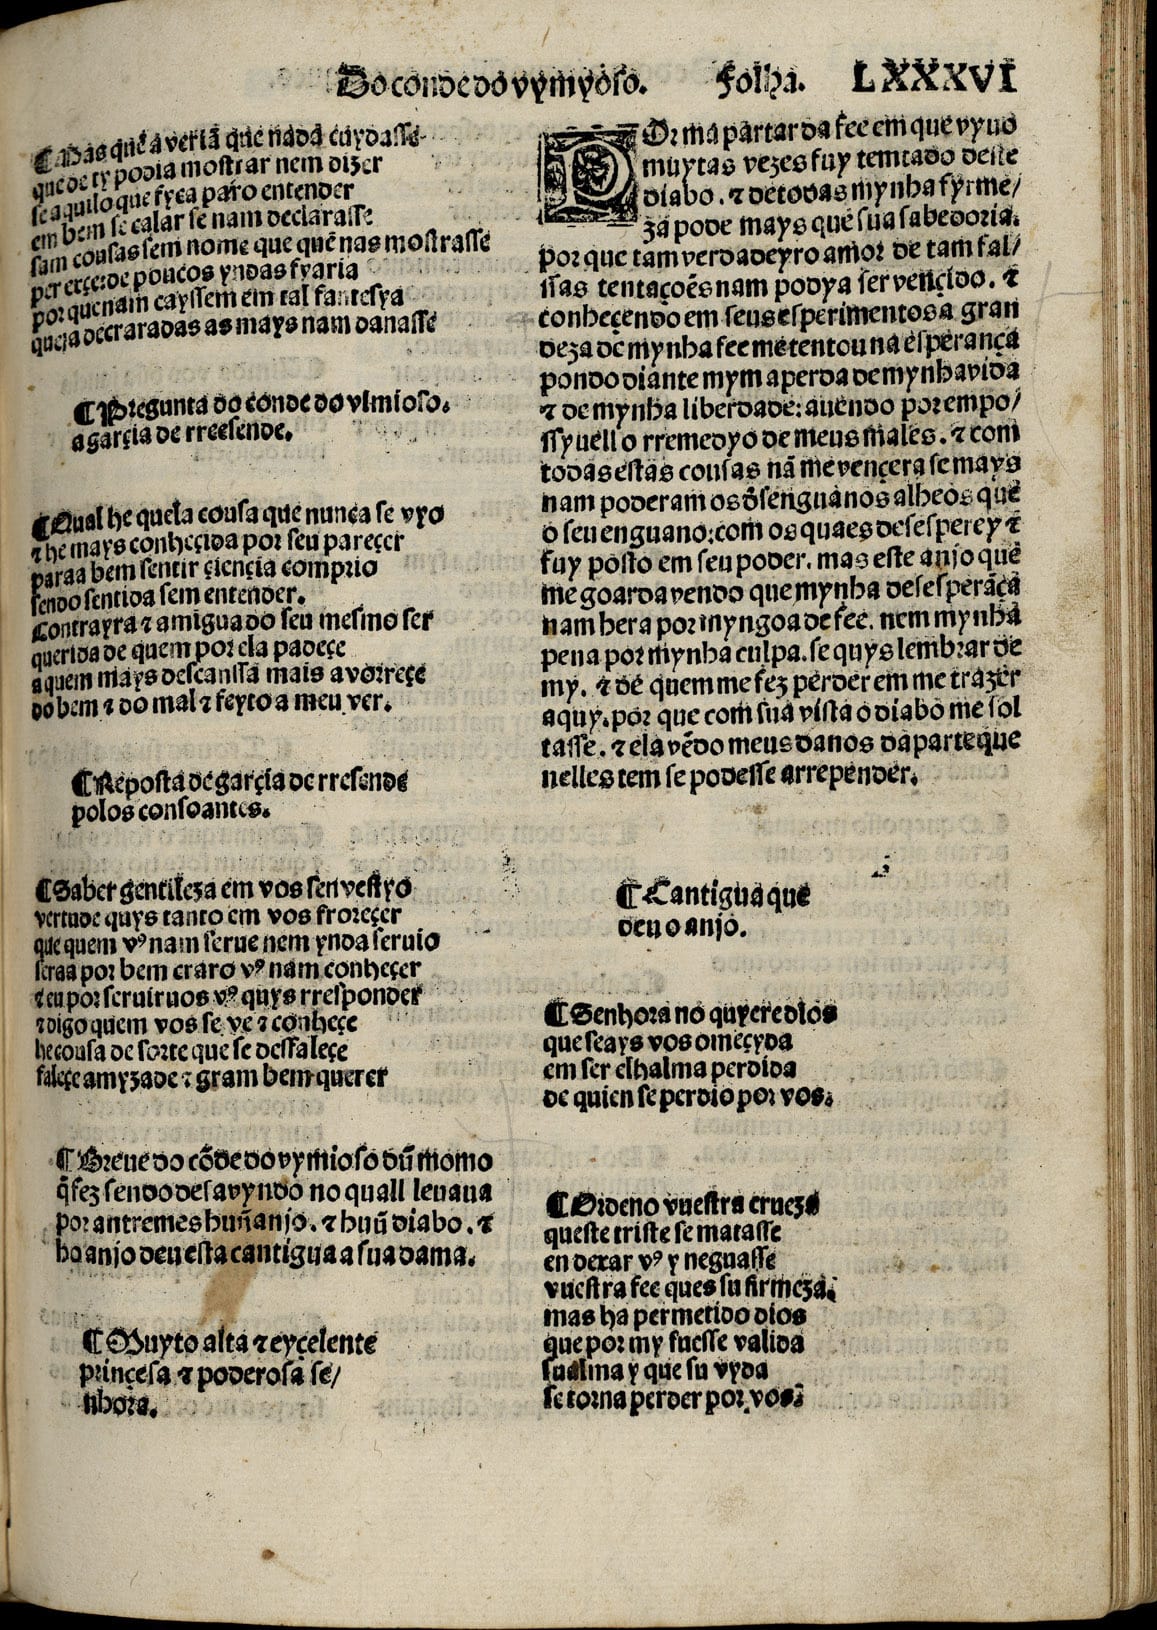 Do conde do vymyoso. Folha. LXXXVI
¶ Mas quẽ a veriã que nada cuydasse
que de ty podia mostrar nem dizer
se aquilo que fyca paro entender
em bem se calar se nam declarasse
sam cousas sem nome que quẽ nas mostrasse
per erçer de poucos yndas fyaria
por que nam cayssem em tal fantesya
queja decraradas as mays nam danasse
¶ Pregunta do conde do vimioso.
a garçia de rreesende.
¶ Qual he quela cousa que nunca se vyo
⁊ he mays conheçida por seu pareçer
para a bem sentir çiençia comprio
sendo sentida sem entender.
Contrayra ⁊ amigua do seu mesmo ser
querida de quem por ela padeçe
a quem mays descanssa mais avorreçe
do bem ⁊ do mal ⁊ feyto a meu ver.
¶ Reposta de garçia de rresende
polos consoantes.
¶ Saber gentileza em vos sen vestyo
vertude quys tanto em vos froreçer
que quem vꝰ nam serue nem ynda seruio
seraa por bem craro vꝰ nam conheçer
⁊ eu por seruiruos vꝰ quys rresponder
⁊ digo quem vos se ve ⁊ conheçe
he cousa de sorte que se desfaleçe
faleçe amyzade ⁊ gram bem querer
¶ Breue do cõde do vymioso dũ momo
q̃ fez sendo desavyndo no quall leuaua
por antremes huũ anjo. ⁊ huũ diabo. ⁊
ho anjo deu esta cantigua a sua dama.
¶ Muyto alta ⁊ eyçelente
prinçesa ⁊ poderosa se/
nhora.
POr ma partar da fee em que vyuo
muytas vezes fuy temtado deste
diabo. ⁊ de todas mynha fyrme/
za pode mays que sua sabedoria.
por que tam verdadeyro amor de tam fal/
ssas tentaçoẽs nam podya ser vençido. ⁊
conheçendo em seus esperimentos a gran
deza de mynha fee me tentou na esperança
pondo diante mym a perda de mynha vida
⁊ de mynha liberdade: auendo por empo/
ssyuell o rremedyo de meus males. ⁊ com
todas estas cousas nã me vençera se mays
nam poderam os dsenguanos alheos que
o seu enguano: com os quaes desesperey ⁊
fuy posto em seu poder. mas este anjo que
me goarda vendo que mynha desesperãça
nam hera por myngoa de fee. nem mynha
pena por mynha culpa. se quys lembrar de
my. ⁊ de quem me fez perder em me trazer
aquy. por que com sua vista o diabo me sol
tasse. ⁊ ela vẽdo meus danos da parte que
nelles tem se podesse arrepender.
¶ Cantigua que
deu o anjo.
¶ Senhora no quyere dios
que seays vos omeçyda
em ser elhalma perdida
de quien se perdio por vos.
¶ Ordeno vuestra crueza
queste triste se matasse
en dexar vꝰ y neguasse
vuestra fee ques su firmeza.
mas ha permetido dios
que por my fuesse valida
sualma y que su vyda
se torna perder por vos.